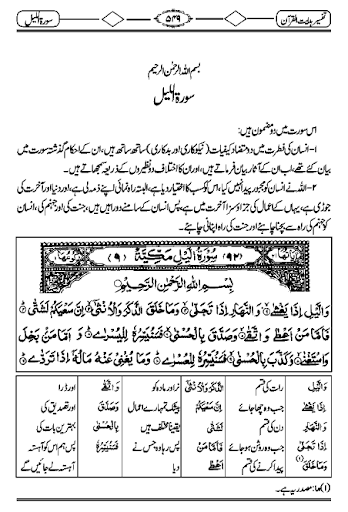 تفسیر ہدایت القرآن
۵۴۹
سورۃ اللیل
بسم اللہ الرحمٰن الرحیم
سورۃ اللیل
اس سورت میں دو مضمون ہیں:
۱- انسان کی فطرت میں دو متضاد کیفیات (نیکوکاری اور بدکاری) ساتھ ساتھ ہیں، ان کے احکام گذشتہ سورت میں
بیان کئے تھے، اب ان کے آثار بیان فرماتے ہیں، اور ان کا اختلاف دو نظیروں کے ذریعہ سمجھاتے ہیں۔
۲- اللہ نے انسان کو مجبور پیدا نہیں کیا، اس کو کسب کا اختیار دیا ہے، البتہ راہ نمائی اپنے ذمہ لی ہے، اور دنیا اور آخرت کی
جوڑی ہے، یہاں کے اعمال کی جزاؤ سزا آخرت میں ہے، پس انسان کے سامنے دو راہیں ہیں، جنت کی اور جہنم کی، انسان
کو جہنم کی راہ سے بچنا چاہئے اور جنت کی راہ اپنانی چاہئے۔
(۹۲) سُوْرَةُ الَّيْلِ مَكِّيَّةٌ (۹)
بِسْمِ اللهِ الرَّحْمٰنِ الرَّحِيْمِ
وَالَّيْلِ اِذَا يَغْشٰى وَالنَّهَارِ اِذَا تَجَلّٰى وَمَا خَلَقَ الذَّكَرَ وَالْاُنْثٰى اِنَّ سَعْيَكُمْ لَشَتّٰى
فَاَمَّا مَنْ اَعْطٰى وَاتَّقٰى وَصَدَّقَ بِالْحُسْنٰى فَسَنُيَسِّرُهٗ لِلْيُسْرٰى وَاَمَّا مَنْ بَخِلَ
وَاسْتَغْنٰى وَكَذَّبَ بِالْحُسْنٰى فَسَنُيَسِّرُهٗ لِلْعُسْرٰى وَمَا يُغْنِيْ عَنْهُ مَالُهٗٓ اِذَا تَرَدّٰى
وَالَّيْلِ رات کی قسم الذَّكَرَ وَالْاُنْثٰى نر اور مادہ کو وَاتَّقٰى اور ڈرا
اِذَا يَغْشٰى جب وہ چھا جائے اِنَّ سَعْيَكُمْ بیشک تمہارے اعمال وَصَدَّقَ اور تصدیق کی
وَالنَّهَارِ دن کی قسم لَشَتّٰى یقیناً مختلف ہیں بِالْحُسْنٰى بہترین بات کی
اِذَا تَجَلّٰى جب وہ روشن ہو جائے فَاَمَّا مَنْ پس رہا وہ جس نے فَسَنُيَسِّرُهٗ پس ہم اس کو آہستہ
وَمَا خَلَقَ (۱) پیدا کرنے کی قسم اَعْطٰى دیا آہستہ لے جائیں گے
(۱) ما: مصدریہ ہے۔